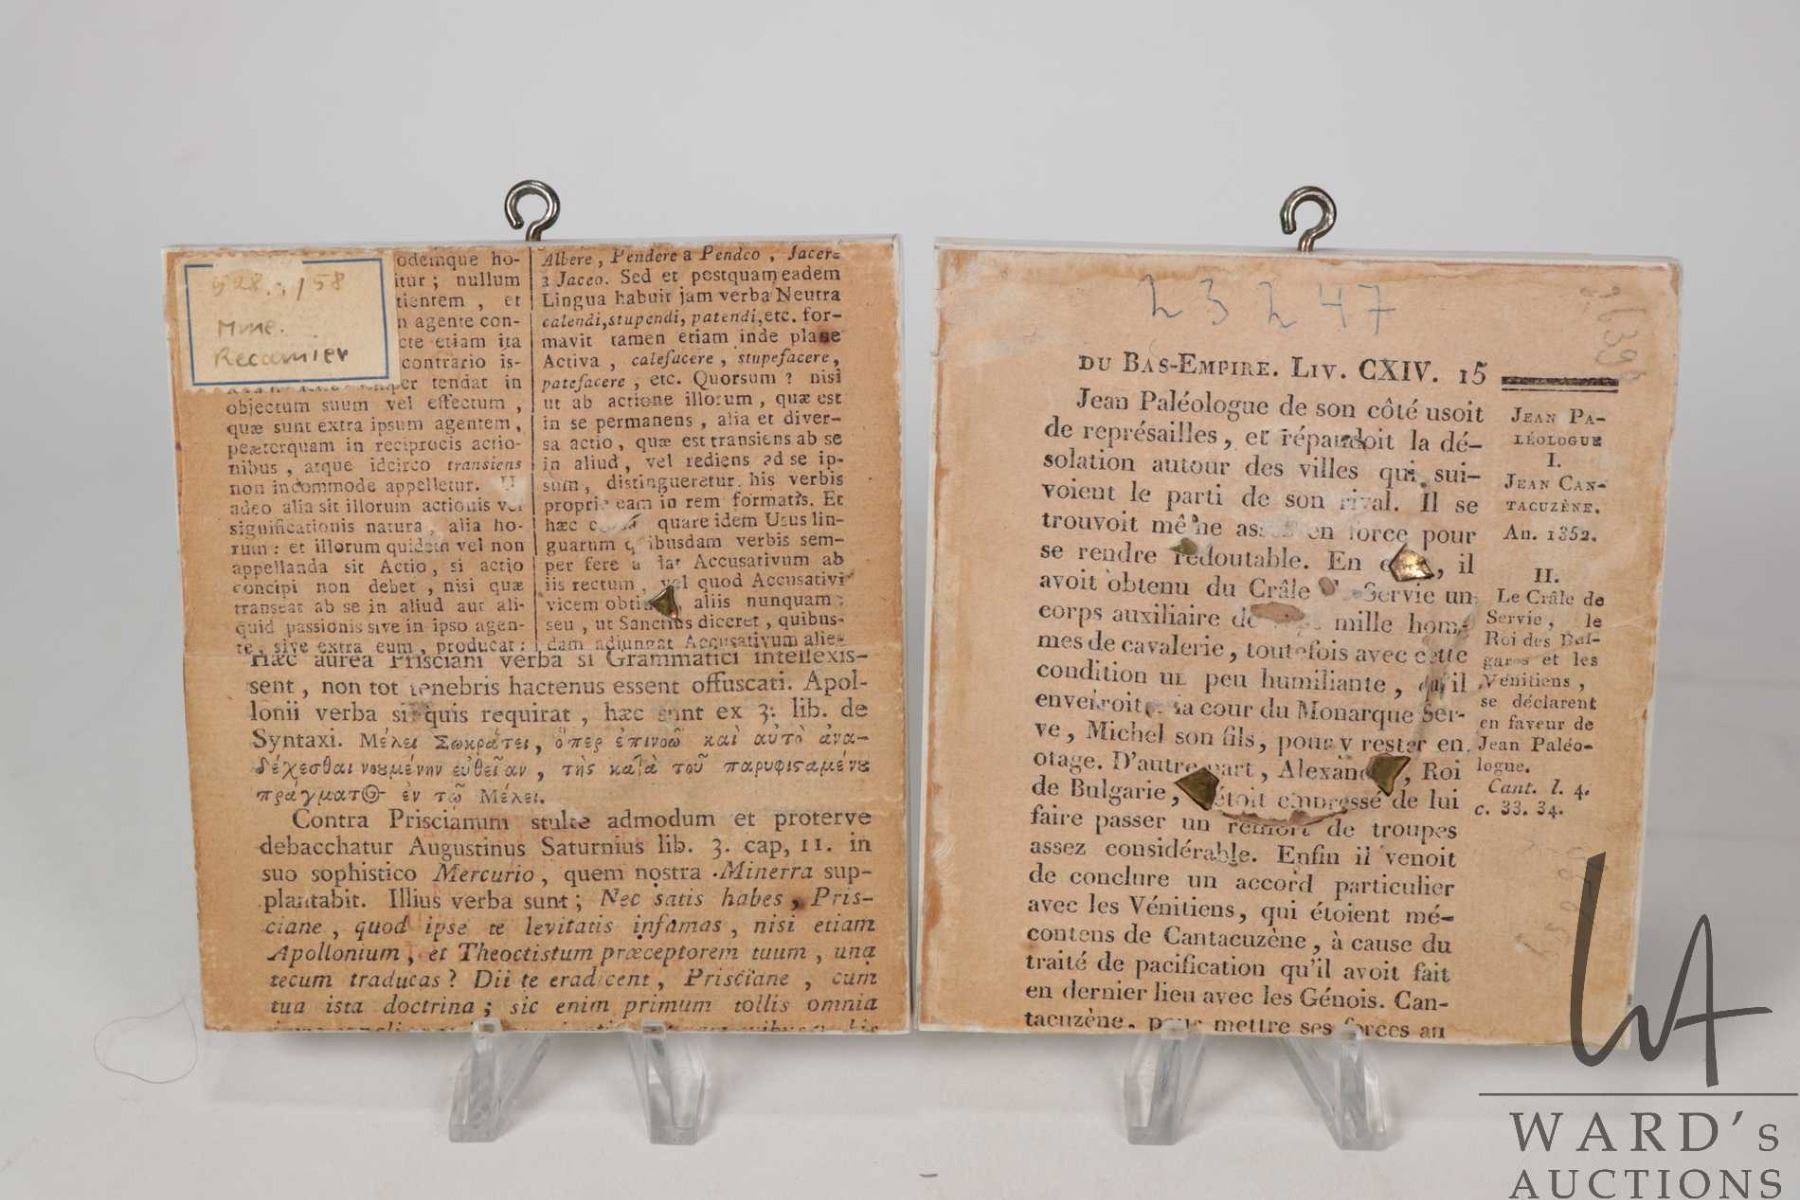 528.:/58
Mme.
Recamier
odemque ho-
itur ; nullum
tientem , et
n agente con-
cte etiam ita
contrario is-
per tendat in
objectum suum vel effectum ,
quæ sunt extra ipsum agentem ,
præterquam in reciprocis actio-
nibus , atque idcirco transiens
non incommode appelletur.
adeo alia sit illorum actionis vel
significationis natura , alia ho-
rum : et illorum quidem vel non
appellanda sit Actio , si actio
concipi non debet , nisi quæ
transeat ab se in aliud aut ali-
quid passionis sive in ipso agen-
te , sive extra eum , producat :
Albere , Pendere a Pendeo , Jacere
a Jaceo. Sed et postquam eadem
Lingua habuit jam verba Neutra
calendi, stupendi, patendi, etc. for-
mavit tamen etiam inde plane
Activa , calefacere , stupefacere ,
patefacere , etc. Quorsum ? nisi
ut ab actione illorum , quæ est
in se permanens , alia et diver-
sa actio , quæ est transiens ab se
in aliud , vel rediens ad se ip-
sum , distingueretur his verbis
proprie eam in rem formatis. Et
hæc quare idem Usus lin-
guarum quibusdam verbis sem-
per fere Accusativum ab
iis rectum , vel quod Accusativi
vicem aliis nunquam :
seu , ut Sanctius diceret , quibus-
dam adjungat Accusativum alie-
Hæc aurea Prisciani verba si Grammatici intellexis-
sent , non tot tenebris hactenus essent offuscati. Apol-
lonii verba si quis requirat , hæc sunt ex 3. lib. de
Syntaxi. Μέλει Σωκράτει , ὅπερ ἐπινοῶ καὶ αὐτὸ ἀνα-
δέχεσθαι νουμένην εὐθεῖαν , τῆς κατὰ τοῦ παρυφισαμένου
πράγματος ἐν τῷ Μέλει.
Contra Priscianum stulte admodum et proterve
debacchatur Augustinus Saturnius lib. 3. cap, 11. in
suo sophistico Mercurio , quem nostra Minerra sup-
plantabit. Illius verba sunt ; Nec satis habes , Pris-
ciane , quod ipse te levitatis infamas , nisi etiam
Apollonium , et Theoctistum præceptorem tuum , una
tecum traducas ? Dii te eradicent , Prisciane , cum
tua ista doctrina ; sic enim primum tollis omnia
23247
DU BAS-EMPIRE. LIV. CXIV. 15
Jean Paléologue de son côté usoit
de représailles , et répandoit la dé-
solation autour des villes qui sui-
voient le parti de son rival. Il se
trouvoit même assez en force pour
se rendre redoutable. En , il
avoit obtenu du Crâle de Servie un
corps auxiliaire de mille hom-
mes de cavalerie , toutefois avec cette
condition un peu humiliante , qu'il
enveiroit à la cour du Monarque Ser-
ve , Michel son fils , pour y rester en
otage. D'autre part , Alexandre , Roi
de Bulgarie , étoit empressé de lui
faire passer un renfort de troupes
assez considérable. Enfin il venoit
de conclure un accord particulier
avec les Vénitiens , qui étoient mé-
contens de Cantacuzène , à cause du
traité de pacification qu'il avoit fait
en dernier lieu avec les Génois. Can-
tacuzène , pour mettre ses forces au
JEAN PA-
LÉOLOGUE
I.
JEAN CAN-
TACUZÈNE.
An. 1352.
II.
Le Crâle de
Servie , le
Roi des Bul-
gares et les
Vénitiens ,
se déclarent
en faveur de
Jean Paléo-
logue.
Cant. l. 4.
c. 33. 34.
WA
WARD's
AUCTIONS